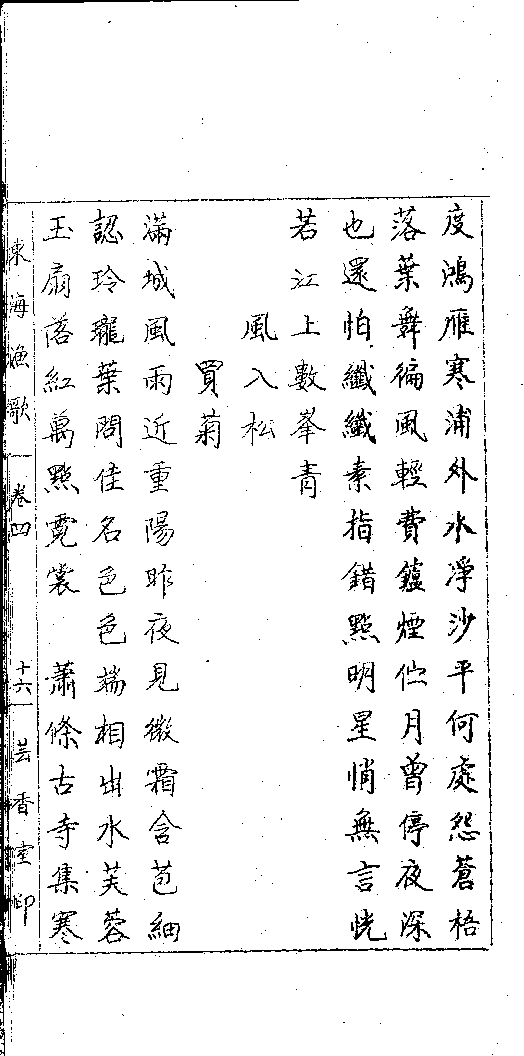 度鴻雁寒浦外水淨沙平何處怨蒼梧
落葉舞徧風輕費鑪煙他月曾停夜深
也還怕纖纖素指錯點明星悄無言恍
若江上數峯青
風入松
買菊
滿城風雨近重陽昨夜見微霜含苞細
認玲瓏葉問佳名色色端相出水芙蓉
玉扇落紅萬點霓裳　蕭條古寺集寒
東海漁歌　卷四　十六　芸香室印